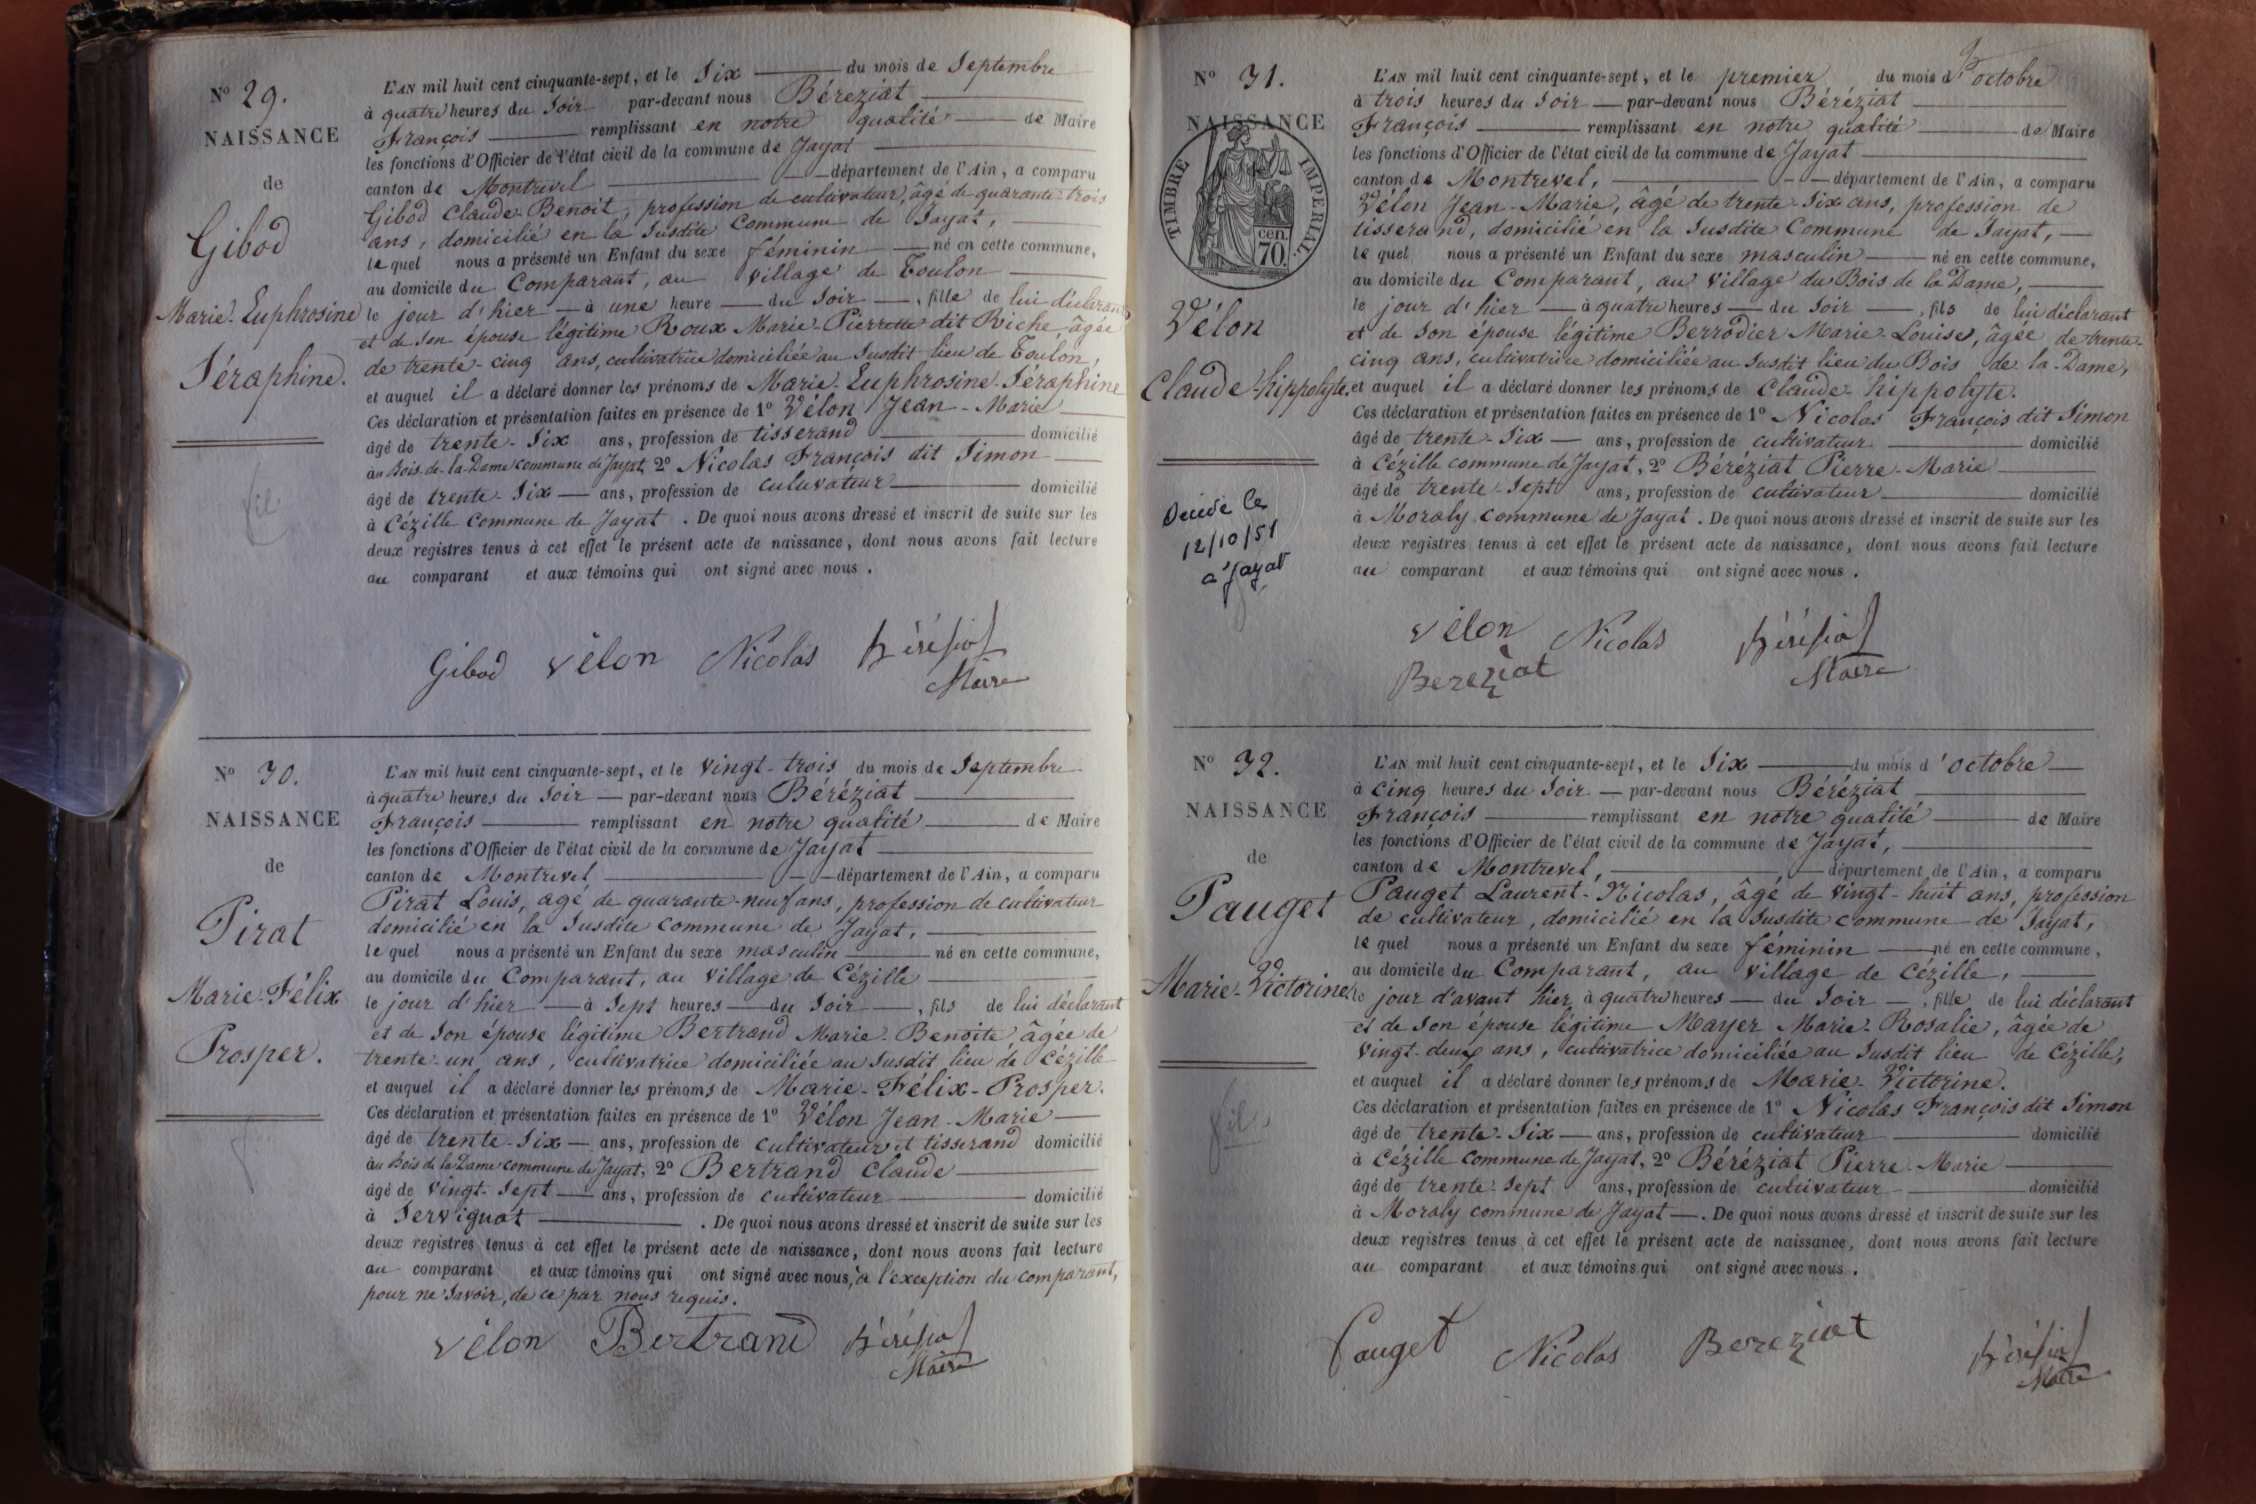 Nº 29.
NAISSANCE
de
Gibod
Marie-Euphrosine
Séraphine.
L'AN mil huit cent cinquante-sept, et le Six du mois de Septembre
à quatre heures du Soir par-devant nous Béréziat
François remplissant en notre qualité de Maire
les fonctions d'Officier de l'état civil de la commune de Jayat
canton de Montrevel département de l'Ain, a comparu
Gibod Claude-Benoit, profession de cultivateur, âgé de quarante-trois
ans, domicilié en la Susdite Commune de Jayat,
le quel nous a présenté un Enfant du sexe féminin né en cette commune,
au domicile du Comparant, au village de Toulon
le jour d'hier à une heure du Soir, fille de lui déclarant
et de Son épouse légitime Roux Marie-Pierrette dit Riche âgée
de trente-cinq ans, cultivatrice domiciliée au Susdit lieu de Toulon,
et auquel il a déclaré donner les prénoms de Marie-Euphrosine-Séraphine
Ces déclaration et présentation faites en présence de 1º Vélon Jean-Marie
âgé de trente-Six ans, profession de tisserand domicilié
au Bois-de-la-Dame commune de Jayat, 2º Nicolas François dit Simon
âgé de trente-Six ans, profession de cultivateur domicilié
à Cézille commune de Jayat. De quoi nous avons dressé et inscrit de suite sur les
deux registres tenus à cet effet le présent acte de naissance, dont nous avons fait lecture
au comparant et aux témoins qui ont signé avec nous.
Gibod vélon Nicolas Béréziat
Maire
Nº 30.
NAISSANCE
de
Pirat
Marie-Félix
Prosper.
L'AN mil huit cent cinquante-sept, et le vingt-trois du mois de Septembre
à quatre heures du Soir par-devant nous Béréziat
François remplissant en notre qualité de Maire
les fonctions d'Officier de l'état civil de la commune de Jayat
canton de Montrevel département de l'Ain, a comparu
Pirat Louis, âgé de quarante-neuf ans, profession de cultivateur
domicilié en la Susdite Commune de Jayat,
le quel nous a présenté un Enfant du sexe masculin né en cette commune,
au domicile du Comparant, au village de Cézille
le jour d'hier à Sept heures du Soir, fils de lui déclarant
et de Son épouse légitime Bertrand Marie-Benoite, âgée de
trente-un ans, cultivatrice domiciliée au Susdit lieu de Cézille
et auquel il a déclaré donner les prénoms de Marie-Félix-Prosper.
Ces déclaration et présentation faites en présence de 1º Vélon Jean-Marie
âgé de trente-Six ans, profession de cultivateur et tisserand domicilié
au Bois de la Dame commune de Jayat, 2º Bertrand Claude
âgé de vingt-Sept ans, profession de cultivateur domicilié
à Servignat. De quoi nous avons dressé et inscrit de suite sur les
deux registres tenus à cet effet le présent acte de naissance, dont nous avons fait lecture
au comparant et aux témoins qui ont signé avec nous, à l'exception du comparant,
pour ne Savoir, de ce par nous requis.
vélon Bertrand Béréziat
Maire
Nº 31.
NAISSANCE
TIMBRE IMPERIAL
70 cen.
Vélon
Claude-hippolyte.
Décédé le
12/10/51
à Jayat
L'AN mil huit cent cinquante-sept, et le premier du mois d'octobre
à trois heures du Soir par-devant nous Béréziat
François remplissant en notre qualité de Maire
les fonctions d'Officier de l'état civil de la commune de Jayat
canton de Montrevel, département de l'Ain, a comparu
Vélon Jean-Marie, âgé de trente-Six ans, profession de
tisserand, domicilié en la Susdite Commune de Jayat,
le quel nous a présenté un Enfant du sexe masculin né en cette commune,
au domicile du Comparant, au village du Bois de la Dame,
le jour d'hier à quatre heures du Soir, fils de lui déclarant
et de Son épouse légitime Berrodier Marie-Louise, âgée de trente-
cinq ans, cultivatrice domiciliée au Susdit lieu du Bois de la Dame,
et auquel il a déclaré donner les prénoms de Claude-hippolyte.
Ces déclaration et présentation faites en présence de 1º Nicolas François dit Simon
âgé de trente-Six ans, profession de cultivateur domicilié
à Cézille commune de Jayat, 2º Béréziat Pierre-Marie
âgé de trente-Sept ans, profession de cultivateur domicilié
à Moraly commune de Jayat. De quoi nous avons dressé et inscrit de suite sur les
deux registres tenus à cet effet le présent acte de naissance, dont nous avons fait lecture
au comparant et aux témoins qui ont signé avec nous.
vélon Nicolas Béréziat
Bereziat Maire
Nº 32.
NAISSANCE
de
Pauget
Marie-Victorine
L'AN mil huit cent cinquante-sept, et le Six du mois d'octobre
à cinq heures du Soir par-devant nous Béréziat
François remplissant en notre qualité de Maire
les fonctions d'Officier de l'état civil de la commune de Jayat,
canton de Montrevel, département de l'Ain, a comparu
Pauget Laurent-Nicolas, âgé de vingt-huit ans, profession
de cultivateur, domicilié en la Susdite commune de Jayat,
le quel nous a présenté un Enfant du sexe féminin né en cette commune,
au domicile du Comparant, au village de Cézille,
le jour d'avant hier à quatre heures du Soir, fille de lui déclarant
et de Son épouse légitime Mayer Marie-Rosalie, âgée de
vingt-deux ans, cultivatrice domiciliée au Susdit lieu de Cézille,
et auquel il a déclaré donner les prénoms de Marie-Victorine.
Ces déclaration et présentation faites en présence de 1º Nicolas François dit Simon
âgé de trente-Six ans, profession de cultivateur domicilié
à Cézille commune de Jayat, 2º Béréziat Pierre-Marie
âgé de trente-Sept ans, profession de cultivateur domicilié
à Moraly commune de Jayat. De quoi nous avons dressé et inscrit de suite sur les
deux registres tenus à cet effet le présent acte de naissance, dont nous avons fait lecture
au comparant et aux témoins qui ont signé avec nous.
Pauget Nicolas Bereziat Béréziat
Maire